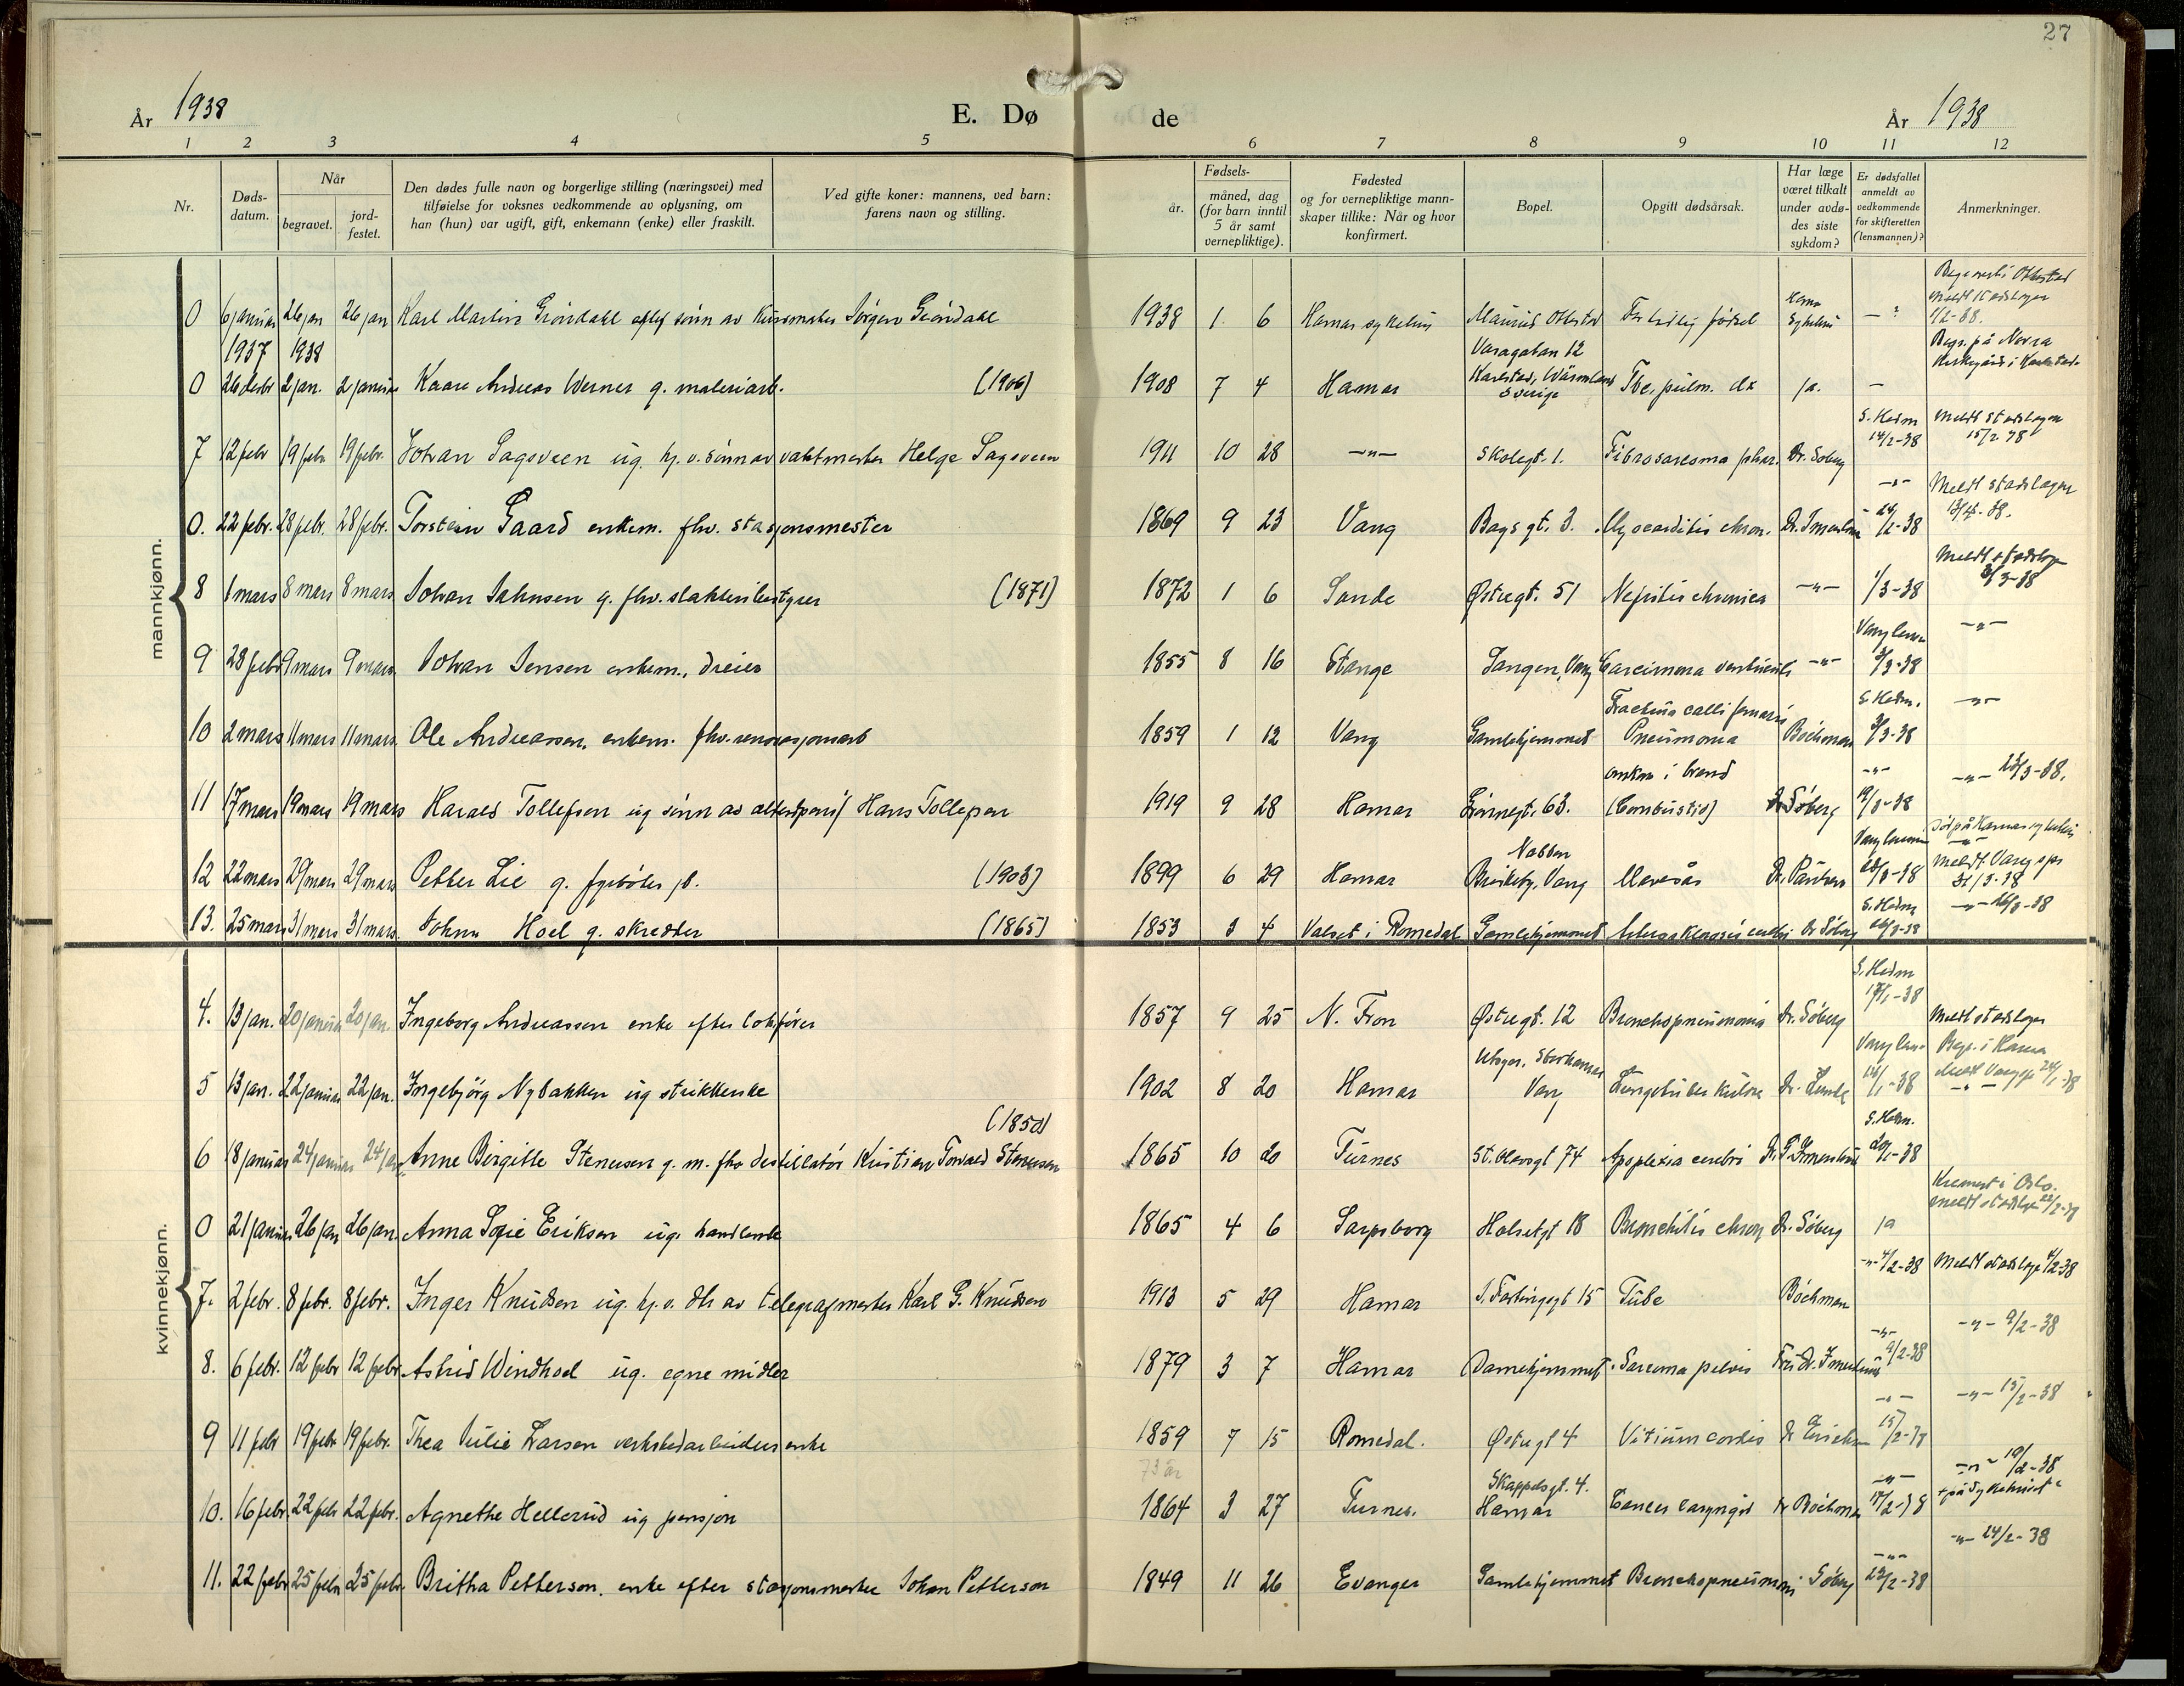 27
År 1938 E. Dø de År 1938
1 2 3 4 5 6 7 8 9 10 11 12
Nr.
Døds-
datum.
Når
begravet.
jord-
festet.
Den dødes fulle navn og borgerlige stilling (næringsvei) med
tilføielse for voksnes vedkommende av oplysning, om
han (hun) var ugift, gift, enkemann (enke) eller fraskilt.
Ved gifte koner: mannens, ved barn:
farens navn og stilling.
Fødsels-
år.
måned, dag
(for barn inntil
5 år samt
vernepliktige).
Fødested
og for vernepliktige mann-
skaper tillike: Når og hvor
konfirmert.
Bopel.
Opgitt dødsårsak.
Har læge
været tilkalt
under avdø-
des siste
sykdom?
Er dødsfallet
anmeldt av
vedkommende
for skifteretten
(lensmannen)?
Anmerkninger.
mannkjønn.
0 6 januar 26 jan 26 jan Karl Martin Gröndahl sönn av Jörgen Gröndahl 1938 1 6 Hamar sykehus Ottestad For tidlig födsel Sykehus
1937 1938 Vasagatan 12
0 26 desbr 2 jan. 2 januar Kaare Andreas Werner g. maleriarb. (1906) 1908 7 4 Hamar Karlstad, Wärmland Sverige Tbc. pulm. dx ja. —
7 12 febr 19 febr 19 febr. Johan Sagsveen ug. hj. v. sönn av vaktmester Helge Sagsveen 1911 10 28 —"— Skolegt. 1. Fibrosarcoma phar. Dr. Söberg S. Hedm 14/2-38 Meldt stadslægen 15/2 38
0. 22 febr. 28 febr. 28 febr. Torstein Gaard enkem. fhv. stasjonsmester 1869 9 23 Vang Bags gt. 3. Myocarditis chron. —"— 24/2-38 Meldt stadslægen
8 1 mars 8 mars 8 mars Johan Jahnsen g. fhv. slakteribestyrer (1871) 1872 1 6 Sande Østregt. 51 Nefritis chronica —"— 1/3-38 Meldt stadslægen
9 28 febr 9 mars 9 mars Johan Jensen enkem., dreier 1855 8 16 Stange Sangen, Vang Carcinoma ventriculi —"— Vang 3/3-38 —"—
10 2 mars 11 mars 11 mars Ole Andreassen, enkem. fhv. renovasjonsarb 1859 1 12 Vang Gamlehjemmet Fractura colli femoris Pneumonia Böchman S. Hedm. 3/3-38 —"—
11 17 mars 19 mars 19 mars Harald Tollefsen ug sönn av Hans Tollefsen 1919 9 28 Hamar Grönnegt. 63. omkom i brand (Combustio) Dr Söberg —"— 19/3-38 —"— 23/3-38.
12 22 mars 29 mars 29 mars Petter Lie g. fyrböter jb. (1903) 1899 6 29 Hamar Nabben Briskeby, Vang Mavesår Dr. Paulsen 28/3-38 Död på Hamar sykehus Meldt Vang spr 31/3-38
13. 25 mars 31 mars 31 mars. Johan Hoel g. skredder (1865) 1853 3 4 Valset i Romedal Gamlehjemmet Arterosklerosis cerebri Dr Söberg S. Hedm 26/3-38 —"— 26/3-38
kvinnekjønn.
4. 13 jan. 20 januar 20 jan. Ingeborg Andreassen enke efter lokförer 1857 9 25 N. Fron Østregt. 12 Bronchopneumonia Dr. Söberg S. Hedm 17/1-38 Meldt stadslægen
5 13 jan. 22 januar 22 jan. Ingebjörg Nybakken ug strikkerske 1902 8 20 Hamar Storhamar Vang Lungetuberkulose Dr. Lunde Vang 14/1-38 Begr. i Hamar
(1850)
6 18 januar 24 januar 24 jan Anne Birgitte Stenersen g. m. fhv destillatör Kristian Torvald Stenersen 1865 10 20 Furnes St. Olavsgt 74 Apoplexia cerebri S. Hedm. 20/1-38
0 21 januar 26 jan 26 jan. Anna Sofie Eriksen ug. handlende 1865 4 6 Sarpsborg Holsetgt 18 Bronchitis chron Dr. Söberg ja Kremert i Oslo.
7. 2 febr. 8 febr. 8 febr. Inger Knudsen ug. hj. v. dtr av telegrafmester Karl G. Knudsen 1913 5 29 Hamar Tube Böchman —"— 4/2-38 Meldt stadslæge 4/2-38
8. 6 febr. 12 febr 12 febr Astrid Windhoel ug. egne midler 1879 3 7 Hamar Damehjemmet. Sarcoma pelvis —"— 9/2-38 —"— 9/2-38
9 11 febr 19 febr 19 febr. Thea Julie Larsen verkstedarbeiders enke 1859 7 15 Romedal. Østregt 4 Vitium cordis Dr Erichsen —"— 15/2-38 —"— 15/2-38
73 år
10. 16 febr. 22 febr 22 febr. Agnethe Hellerud ug pensjon 1864 3 27 Furnes. Skappelsgt. 4. Hamar Cancer laryngis Dr Böchman —"— 17/2-38 —"— 19/2-38 + på Sykehuset
11. 22 febr 25 febr 25 febr. Britha Petterson, enke efter stasjonsmester Johan Petterson 1849 11 26 Evanger Gamlehjemmet Bronchopneumoni Söberg —"— 23/2-38 —"— 24/2-38